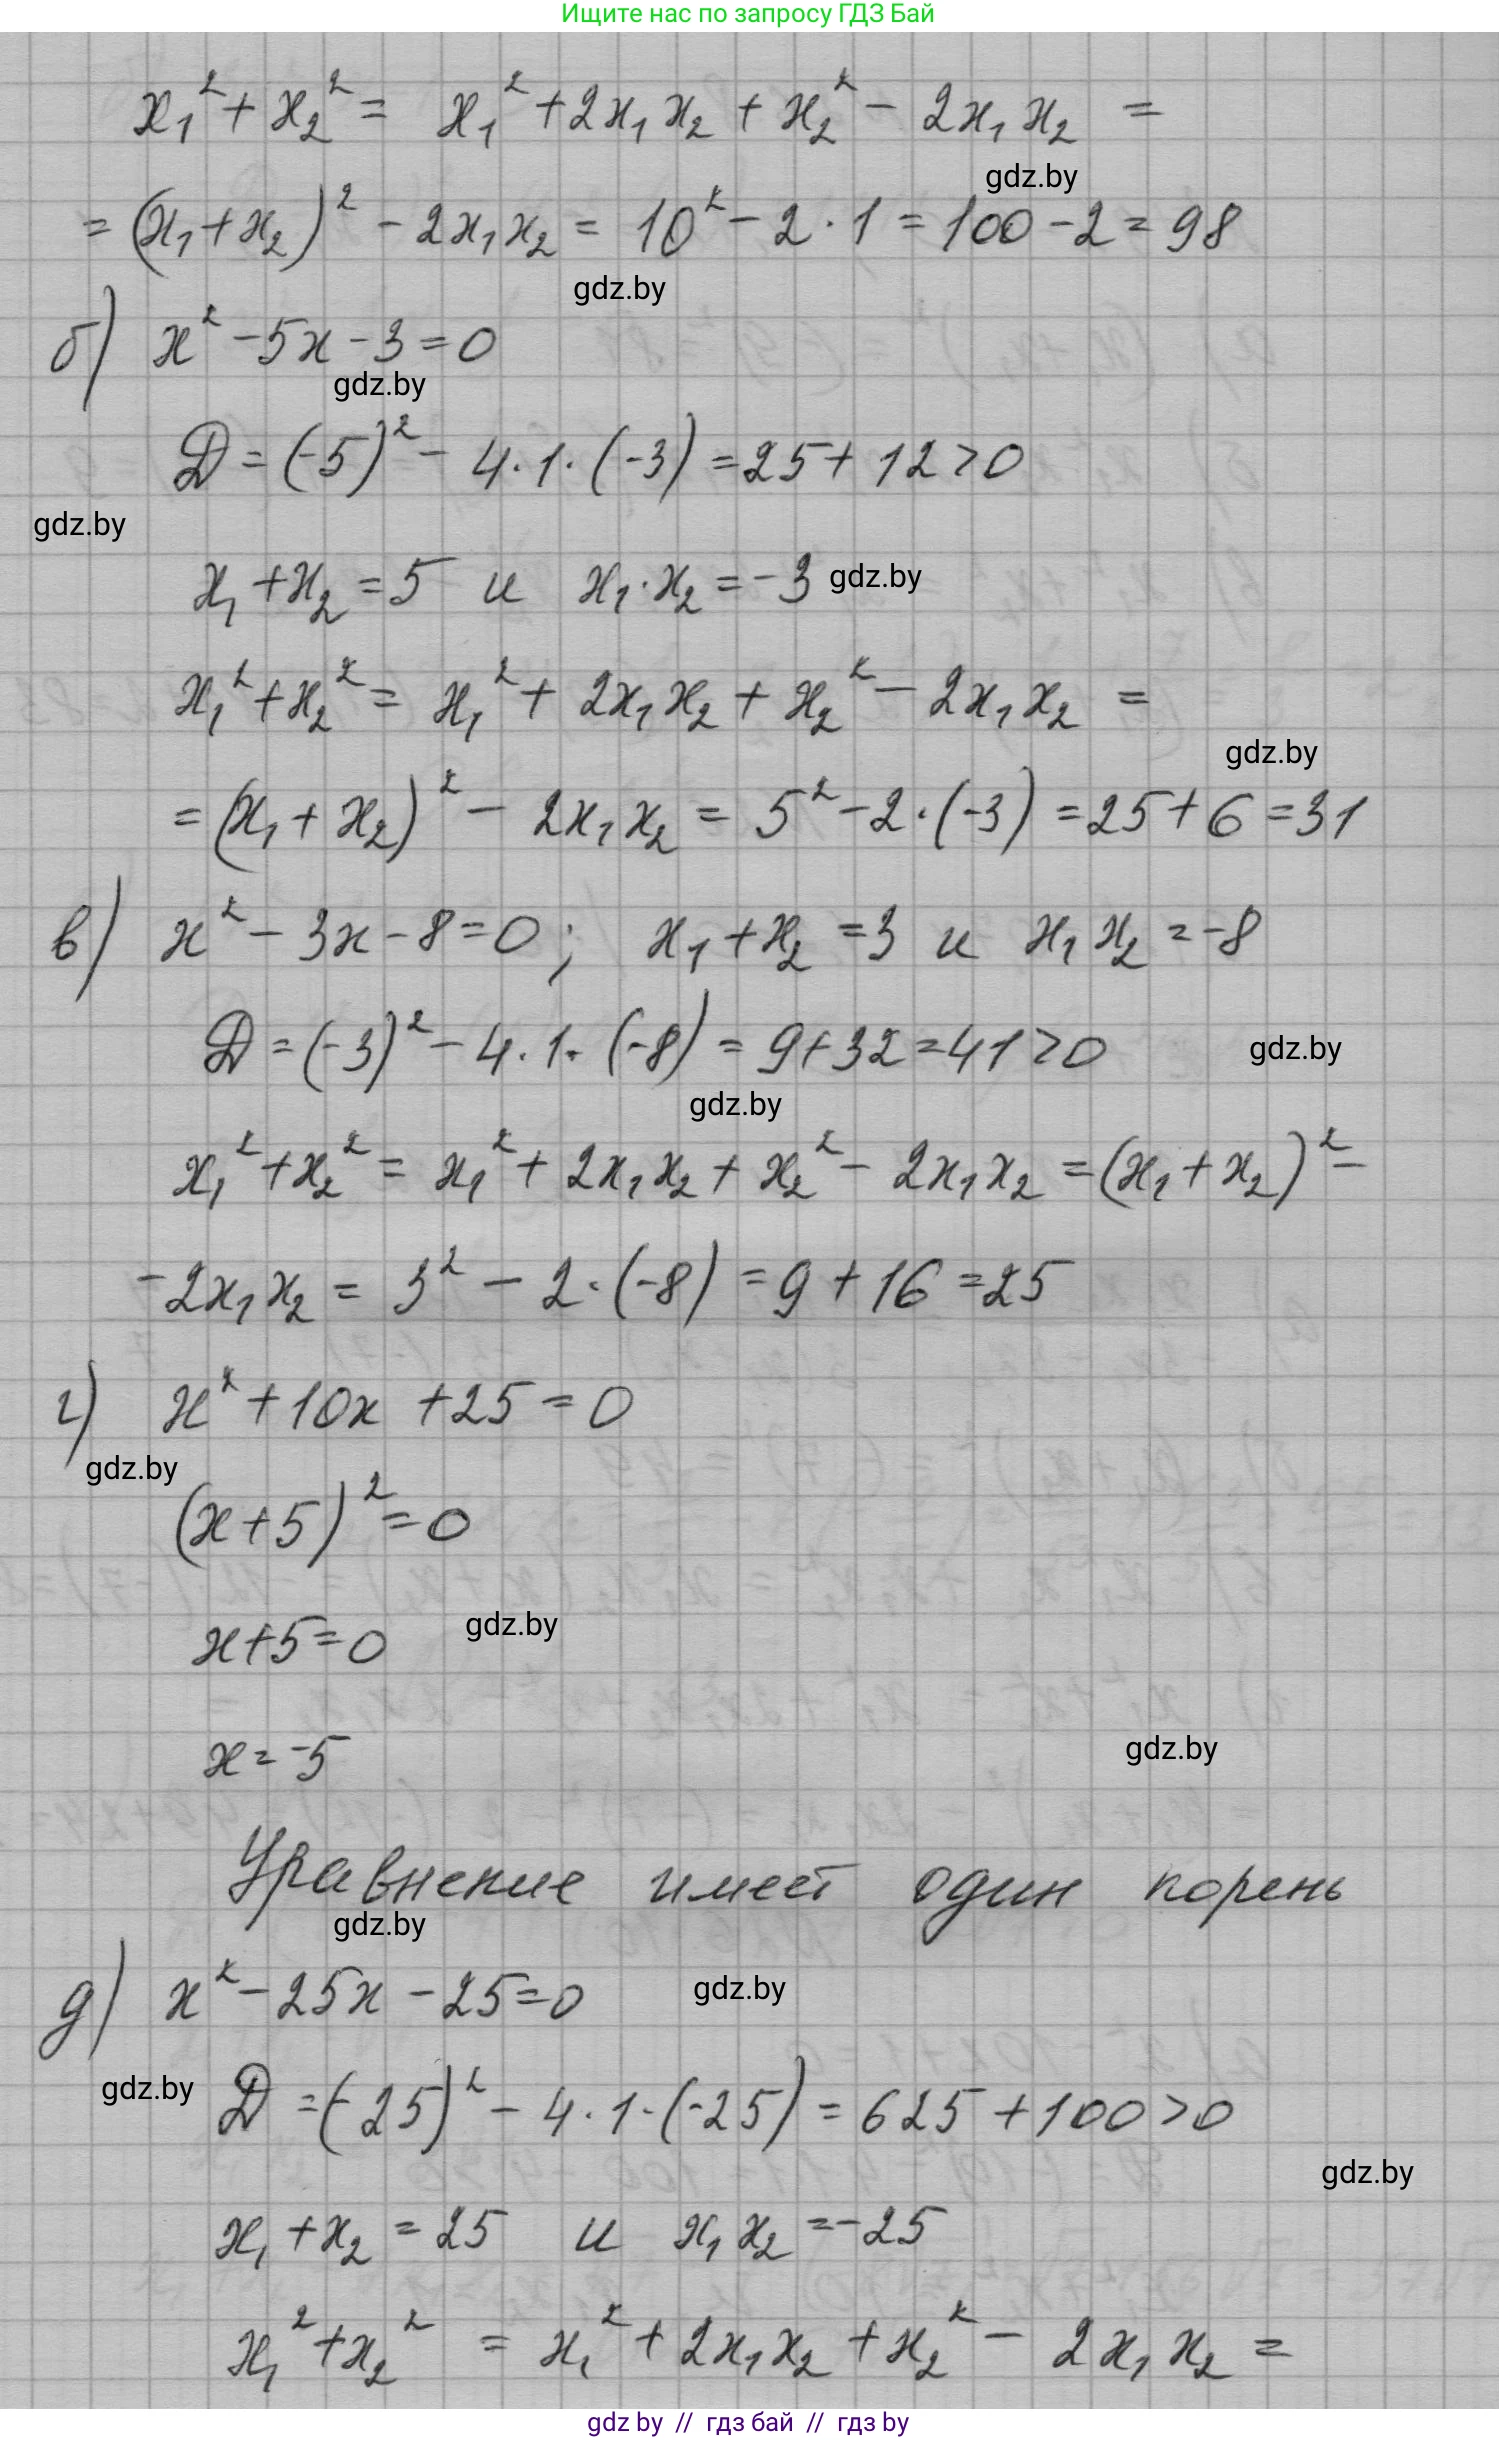 Ищите нас по запросу ГДЗ Бай
x₁² + x₂² = x₁² + 2x₁x₂ + x₂² - 2x₁x₂ =
gdz.by
= (x₁ + x₂)² - 2x₁x₂ = 10² - 2 · 1 = 100 - 2 = 98
gdz.by
б) x² - 5x - 3 = 0
gdz.by
D = (-5)² - 4 · 1 · (-3) = 25 + 12 > 0
gdz.by
x₁ + x₂ = 5 и x₁ · x₂ = -3 gdz.by
x₁² + x₂² = x₁² + 2x₁x₂ + x₂² - 2x₁x₂ =
gdz.by
= (x₁ + x₂)² - 2x₁x₂ = 5² - 2 · (-3) = 25 + 6 = 31
в) x² - 3x - 8 = 0; x₁ + x₂ = 3 и x₁x₂ = -8
D = (-3)² - 4 · 1 · (-8) = 9 + 32 = 41 > 0 gdz.by
gdz.by
x₁² + x₂² = x₁² + 2x₁x₂ + x₂² - 2x₁x₂ = (x₁ + x₂)² -
- 2x₁x₂ = 3² - 2 · (-8) = 9 + 16 = 25
г) x² + 10x + 25 = 0
gdz.by
(x + 5)² = 0
x + 5 = 0 gdz.by
x = -5 gdz.by
Уравнение имеет один корень
gdz.by
д) x² - 25x - 25 = 0 gdz.by
gdz.by D = (-25)² - 4 · 1 · (-25) = 625 + 100 > 0
gdz.by
x₁ + x₂ = 25 и x₁x₂ = -25
x₁² + x₂² = x₁² + 2x₁x₂ + x₂² - 2x₁x₂ =
gdz by // гдз бай // гдз by